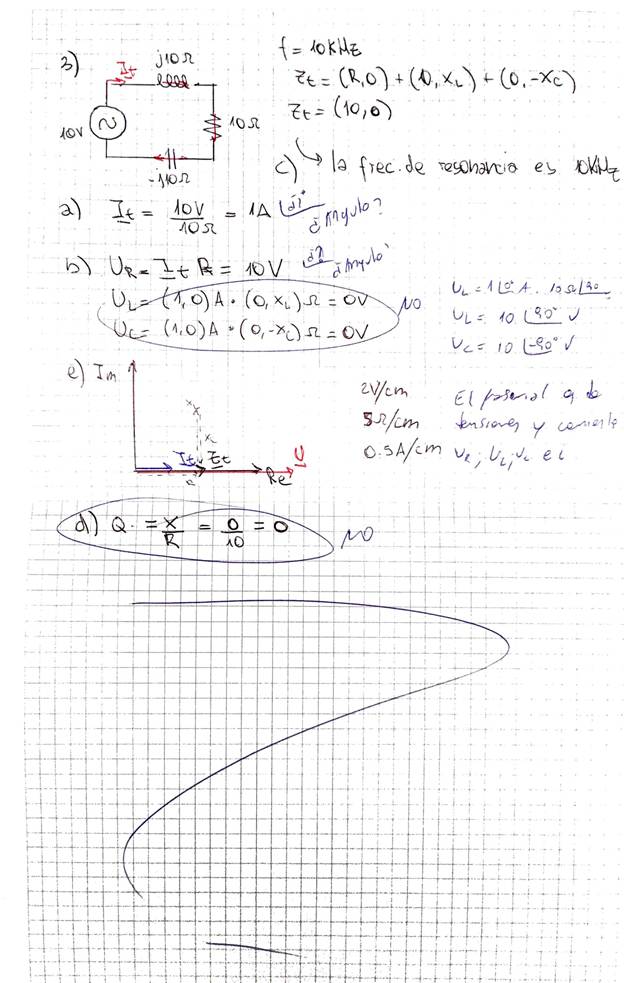 3)
It
j10Ω
10V
10Ω
-j10Ω
f = 10KHz
Zt = (R,0) + (0,XL) + (0,-XC)
Zt = (10,0)
c) la frec. de resonancia es 10KHz
a) It = 10V/10Ω = 1A ¿Angulo?
b) UR = It R = 10V ¿Angulo?
UL = (1,0)A · (0,XL)Ω = 0V
UC = (1,0)A · (0,-XC)Ω = 0V
NO
UL = 1∠0° A · 10Ω∠90
UL = 10 ∠90° V
UC = 10 ∠-90° V
e) Im
It
Zt
Re
U
2V/cm
5Ω/cm
0.5A/cm
El fasorial es de
tensiones y corriente
UR; UL; UC e i
d) Q = X/R = 0/10 = 0
NO